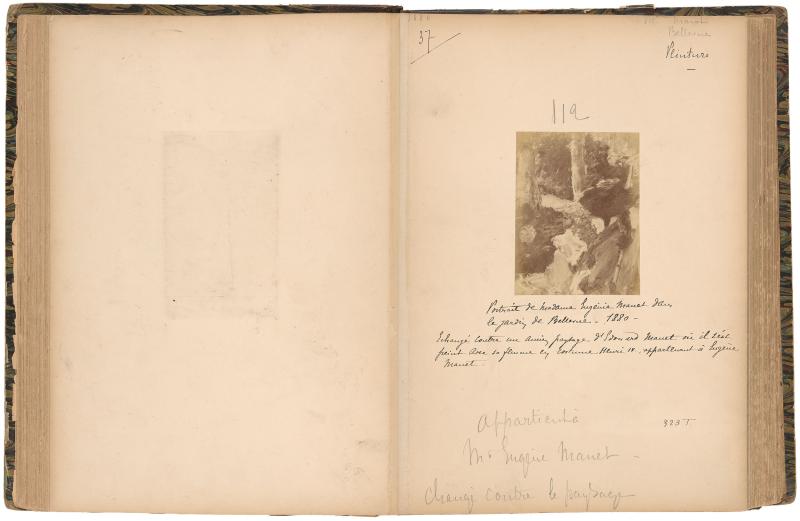 1880
37
Manet
Bellevue
Peinture
112
Portrait de Madame Eugène Manet dans
le jardin de Bellevue - 1880 -
Echangé contre un ancien paysage d'Edouard Manet où il s'est
peint avec sa femme en costume Henri IV. appartenant à Eugène
Manet.
Appartient à
323 T
Mr Eugène Manet -
changé contre le paysage